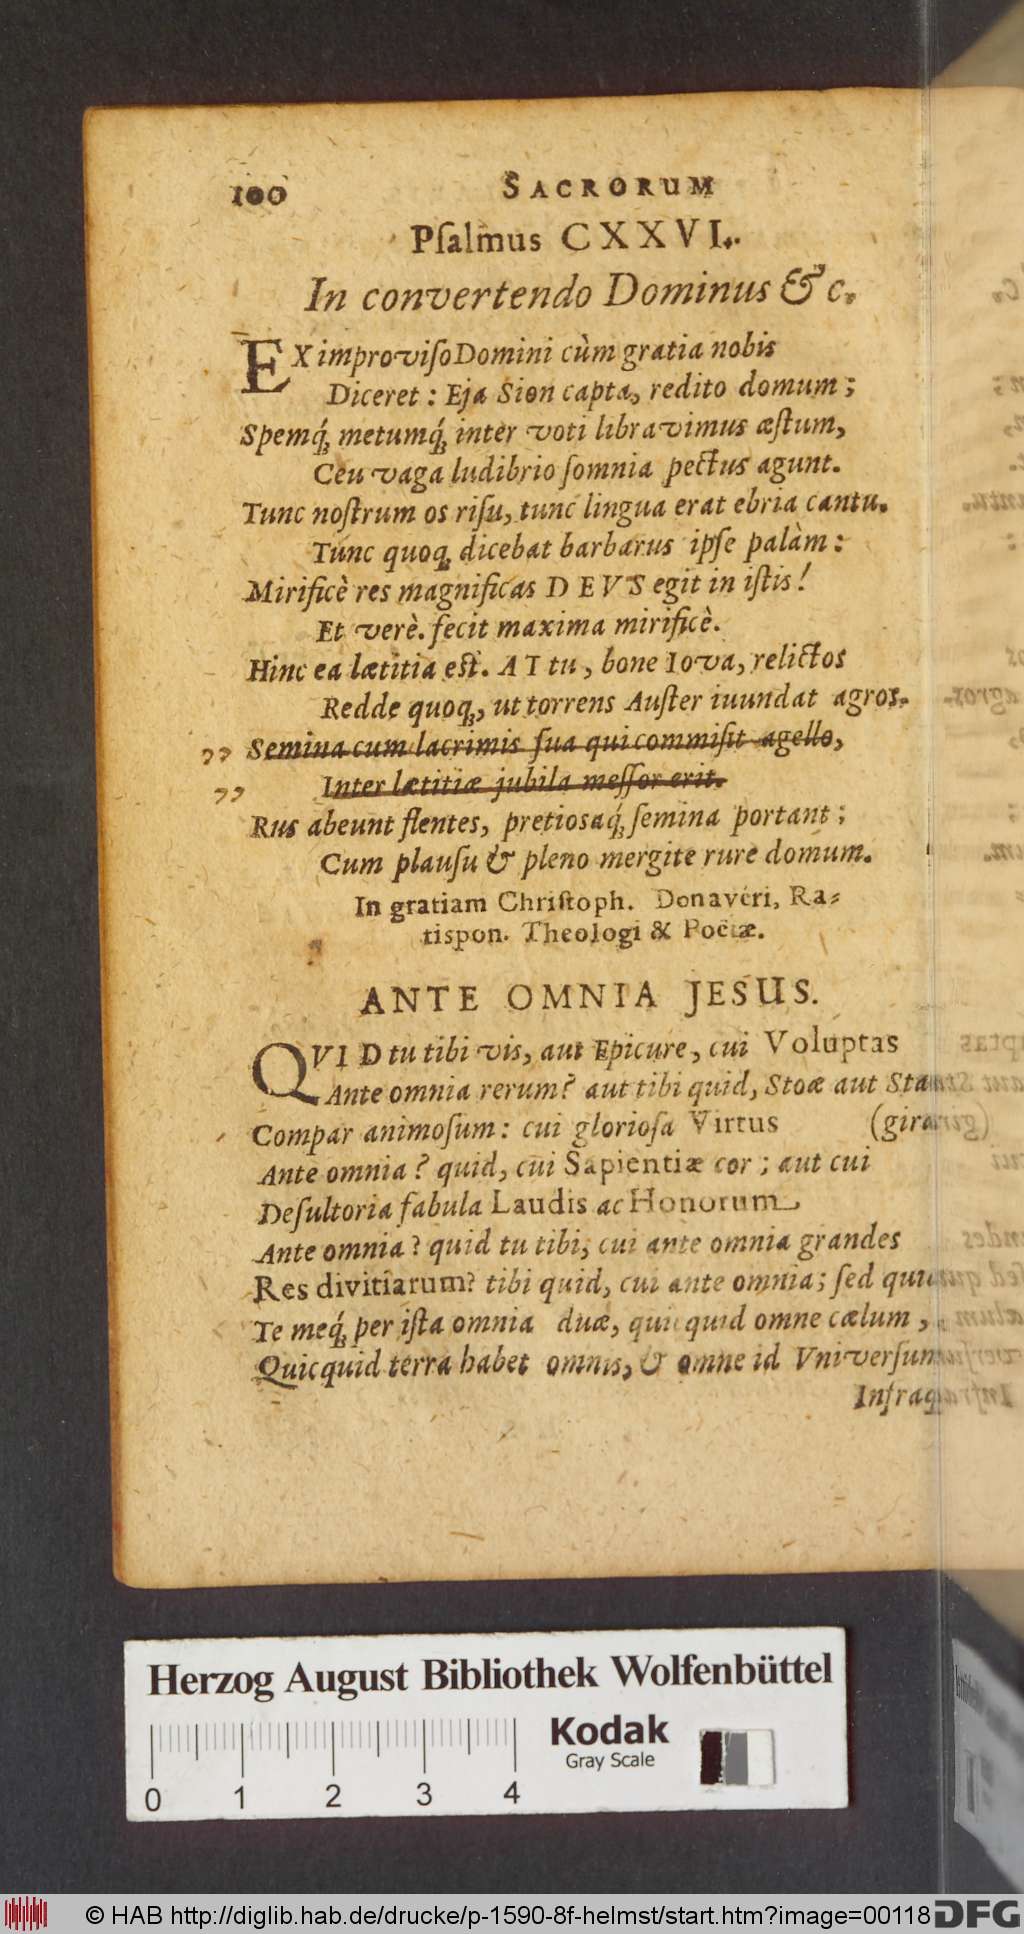 100 SACRORUM
Pſalmus CXXVI.
In convertendo Dominus &c.
EX improviſo Domini cùm gratia nobis
Diceret : Eja Sion capta, redito domum ;
Spemq́; metumq́; inter voti libravimus æſtum,
Ceu vaga ludibrio ſomnia pectus agunt.
Tunc noſtrum os riſu, tunc lingua erat ebria cantu.
Tunc quoq; dicebat barbarus ipſe palàm :
Mirificè res magnificas DEVS egit in iſtis !
Et verè. fecit maxima mirificè.
Hinc ea lætitia eſt. AT tu, bone Iova, relictos
Redde quoq;, ut torrens Auſter inundat agros.
,, Semina cum lacrimis ſua qui commiſit agello,
,, Inter lætitiæ jubila meſſor erit.
Rus abeunt flentes, pretiosaq́; ſemina portant ;
Cum plauſu & pleno mergite rure domum.
In gratiam Chriſtoph. Donaveri, Ra-
tispon. Theologi & Poëtæ.
ANTE OMNIA JESUS.
QVID tu tibi vis, aut Epicure, cui Voluptas
Ante omnia rerum? aut tibi quid, Stoæ aut Sta
Compar animoſum : cui glorioſa Virtus (gir
Ante omnia ? quid, cui Sapientiæ cor ; aut cui
Deſultoria fabula Laudis ac Honorum
Ante omnia ? quid tu tibi, cui ante omnia grandes
Res divitiarum? tibi quid, cui ante omnia ; ſed qui
Te meq́; per iſta omnia duæ, quicquid omne cælum ,
Quicquid terra habet omnis, & omne id Vniverſum
Infraq
Herzog August Bibliothek Wolfenbüttel
Kodak
Gray Scale
0 1 2 3 4
© HAB http://diglib.hab.de/drucke/p-1590-8f-helmst/start.htm?image=00118 DFG